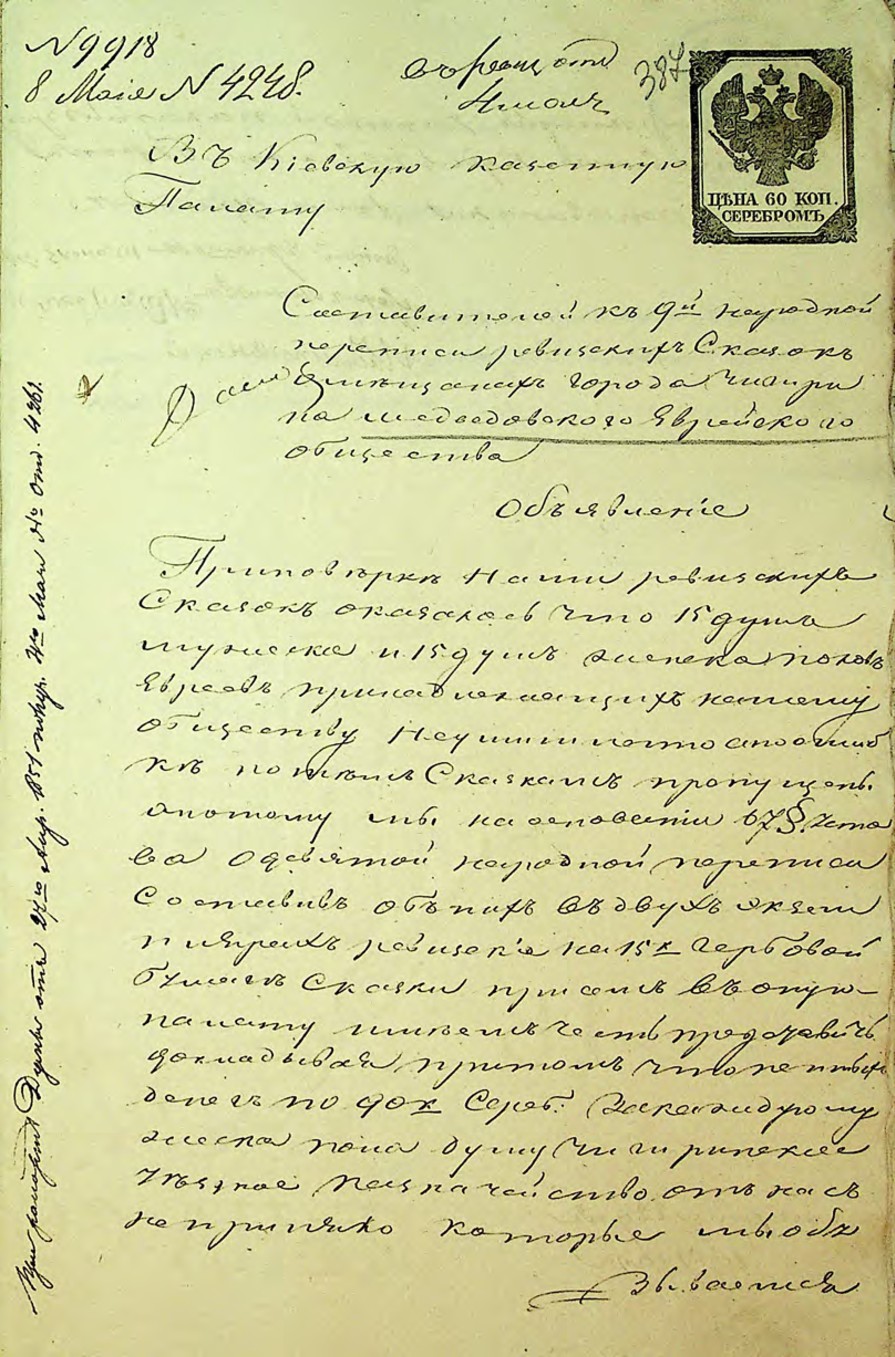 N 9918
8 Маія N 4248.
въ ревиз отд
387
ЦѢНА 60 КОП.
СЕРЕБРОМЪ
Въ Кіевскую казенную
Палату
Составителей къ 9й народной
переписи ревизскихъ Сказокъ
о мѣщанахъ города Чигири
на медведовского Еврейского
общества
Объявленіе
При повѣркѣ нами ревизскихъ
Сказокъ оказалось что 15 душъ
мужеска и 15 душъ женска половъ
Евреевъ принадлежащихъ нашему
обществу Неумышленно а по ошиб
кѣ по тѣмъ Сказкамъ пропущены.
а потому мы. на основаніи 67 § Уста
ва о девятой народной переписи
Составивъ объ нихъ въ двухъ экзем
плярахъ ревизскіе на 15к гербовой
бумагѣ Сказки при семъ въ оную
палату имѣемъ честь представить
докладывая притомъ что
денегъ по 90к Сереб: За каждую му
жеска пола душу Чигиринское
Уѣздное Казначейство отъ насъ
не приняло которые мы обя
зываемся
При рапортѣ Думы отъ 27го Апр. 851 получ. 4го Мая No отд. 4261.